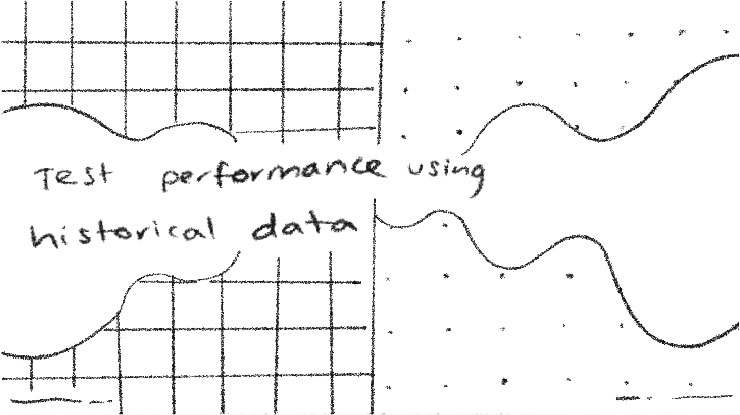 Test performance using
historical data